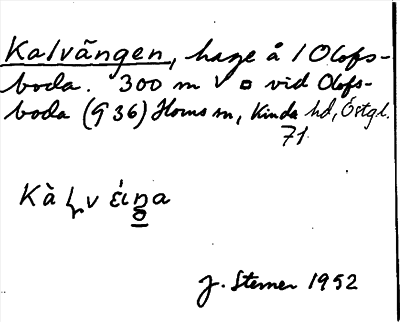 Kalvängen, hage å 1 Olofs-
boda. 300 m V o vid Olofs-
boda (936) Horns sn, Kinda hd, Östgl.
71.
J. Sterner 1952